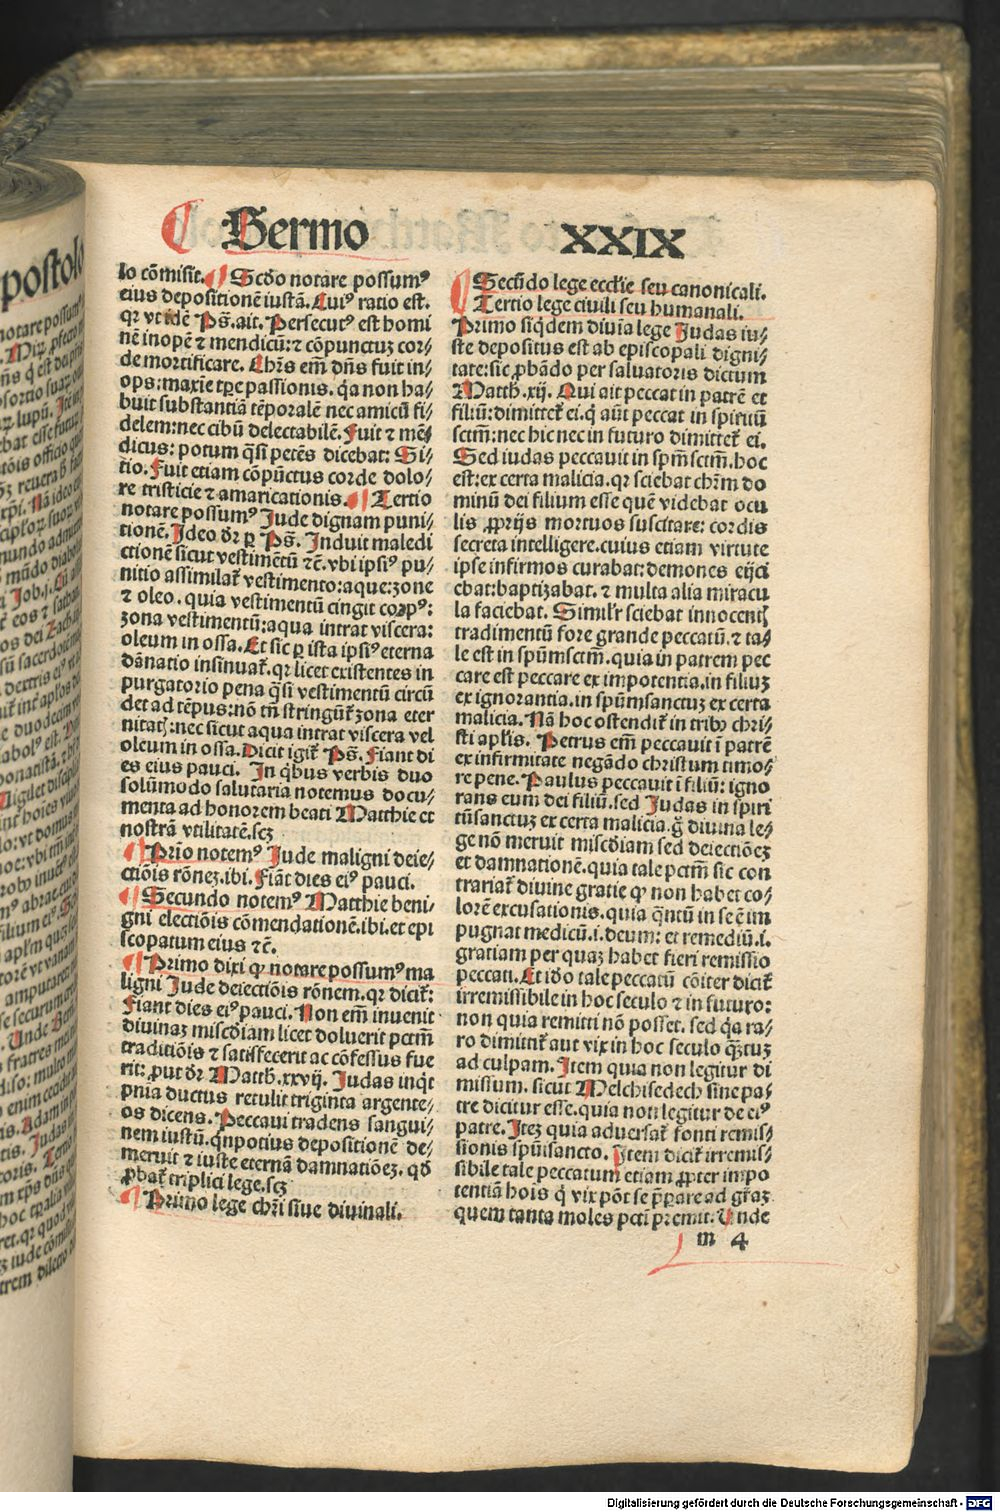 Sermo XXIX
lo cōmisit. Scdo notare possumꝰ
eius depositionē iustā. Cuiꝰ ratio est.
qꝛ vt idē Ps̄. ait. Persecutꝰ est homi
nē inopē ⁊ mendicū: ⁊ cōpunctuꝫ cor⸗
de mortificare. Chr̄s em̄ dn̄s fuit in⸗
ops: maxīe tꝑe passionis. qͣa non ha⸗
buit substantiā tēporalē nec amicū fi⸗
delem: nec cibū delectabilē. Fuit ⁊ mē⸗
dicus: potum qͣsi petēs dicebat: Si⸗
tio. Fuit etiam cōpūctus corde dolo⸗
re tristicie ⁊ amaricationis. Tertio
notare possumꝰ Jude dignam puni⸗
tionē. Ideo dr̄ ꝑ Ps̄. Induit maledi
ctionē sicut vestimētū ⁊c̄. vbi ipsiꝰ pu⸗
nitio assimilat̄ vestimento: aque: zone
⁊ oleo. quia vestimentū cingit corpꝰ:
zona vestimentū: aqua intrat viscera:
oleum in ossa. Et sic ꝑ ista ipsiꝰ eterna
dānatio insinuat̄. qꝛ licet existentes in
purgatorio pena qͣsi vestimentū circū
det ad tēpus: nō tn̄ stringūt̄ zona eter
nitatꝭ: nec sicut aqua intrat viscera vel
oleum in ossa. Dicit igit̄ Ps̄. Fiant di
es eius pauci. In qͥbus verbis duo
solūmodo salutaria notemus docu⸗
menta ad honorem beati Matthie et
nostrā vtilitatē. scꝫ
Prīo notemꝰ Jude maligni deie⸗
ctiōis rōneꝫ. ibi. Fiāt dies eiꝰ pauci.
Secundo notemꝰ Matthie beni⸗
gni electiōis cōmendationē. ibi. et epi
scopatum eius ⁊c̄.
Primo dixi ꝙ notare possumꝰ ma
ligni Jude deiectiōis rōnem. qꝛ dicit̄:
Fiant dies eiꝰ pauci. Non em̄ inuenit
diuinaꝫ miscd̄iam licet doluerit pctm̄
traditiōis ⁊ satisfecerit ac cōfessus fue
rit: ꝓut dr̄ Matth. xxvij. Judas inqͥt
pn̄ia ductus retulit triginta argente⸗
os dicens. Peccaui tradens sangui⸗
nem iustū. qn̄potius depositionē de⸗
meruit ⁊ iuste eternā damnatiōeꝫ. qd̄
ꝓbat̄ triplici lege. scꝫ
Primo lege chr̄i siue diuinali.
Secūdo lege ecclie seu canonicali.
Tertio lege ciuili seu humanali.
Primo siqͥdem diuīa lege Judas iu⸗
ste depositus est ab episcopali digni⸗
tate: sic ꝓbādo per saluatoris dictum
Matth. xij. Qui ait peccat in patrē et
filiū: dimittet̄ ei. qͥ aūt peccat in spiritū
sctm̄: nec hic nec in futuro dimittet̄ ei.
Sed iudas peccauit in spm̄sctm̄. hoc
est: ex certa malicia. qꝛ sciebat chr̄m do
minū dei filium esse quē videbat ocu
lis ꝓprijs mortuos suscitare: cordis
secreta intelligere. cuius etiam virtute
ipse infirmos curabat: demones eijci
ebat: baptizabat. ⁊ multa alia miracu
la faciebat. Similr̄ sciebat innocentꝭ
tradimentū fore grande peccatū. ⁊ ta⸗
le est in spūmsctm̄. quia in patrem pec
care est peccare ex impotentia. in filiuꝫ
ex ignorantia. in spūmsanctuꝫ ex certa
malicia. Nā hoc ostendit̄ in tribꝰ chri⸗
sti apl̄is. Petrus em̄ peccauit ī patrē
ex infirmitate negādo christum timo⸗
re pene. Paulus peccauit ī filiū: igno
rans eum dei filiū. sed Judas in spiri
tūsanctuꝫ ex certa malicia. gͦ diuina le⸗
ge nō meruit miscd̄iam sed deiectiōeꝫ
et damnationē. quia tale pctm̄ sic con
trariat̄ diuine gratie ꝙ non habet co⸗
lorē excusationis. quia qͣntū in se ē im
pugnat medicū .i. deum: et remediū .i.
gratiam per quaꝫ habet fieri remissio
peccati. Et iḋo tale peccatū cōiter dicit̄
irremissibile in hoc seculo ⁊ in futuro:
non quia remitti nō posset. sed qͣa ra⸗
ro dimittit̄ aut vix in hoc seculo qͣꝫtuꝫ
ad culpam. Item quia non legitur di
missum. sicut Melchisedech sine pa⸗
tre dicitur esse. quia non legitur de eiꝰ
patre. Iteꝫ quia aduersat̄ fonti remis⸗
sionis spūisancto. Item dicit̄ irremis⸗
sibile tale peccatum etiam ꝓpter impo
tentiā hoīs qͥ vix pōt se p̄parare ad gr̄aꝫ
quem tanta moles pctī premit. Unde
m 4
Digitalisierung gefördert durch die Deutsche Forschungsgemeinschaft - DFG